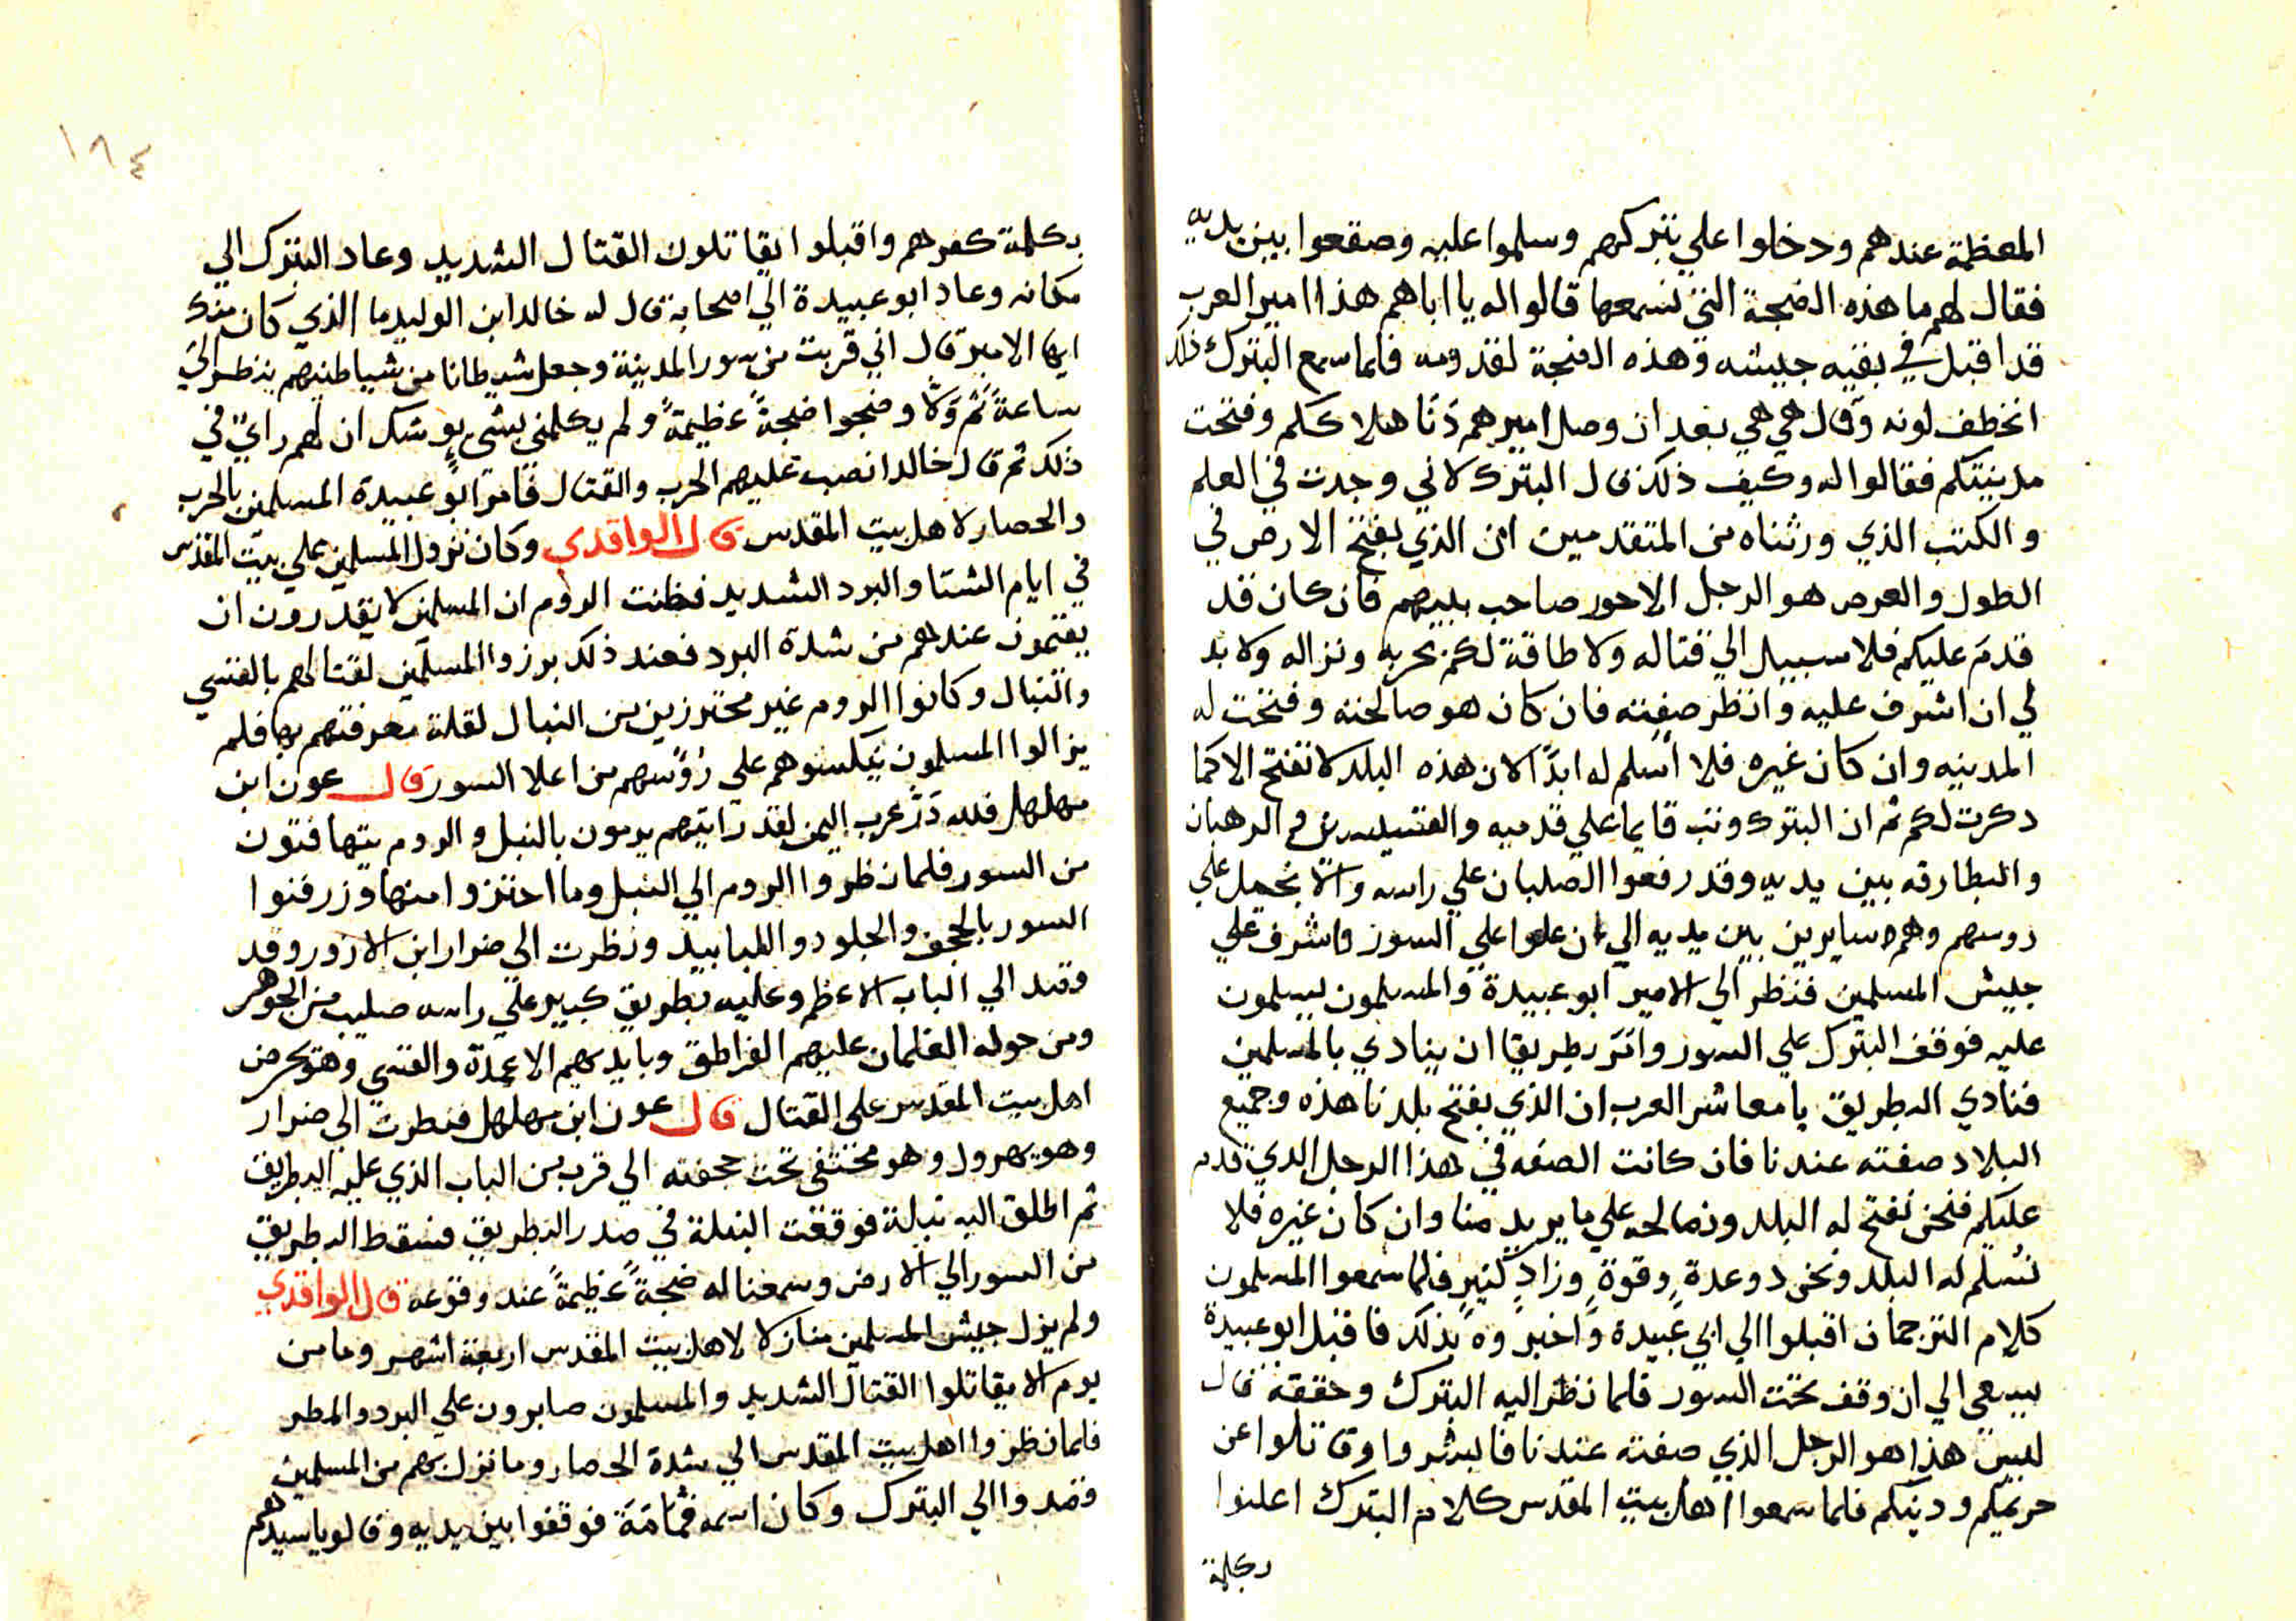 المعظمة عندهم ودخلوا علي بتركهم وسلموا عليه وصقعوا بين يديه
فقال لهم ما هذه الضجة التي نسمعها قالوا له يا اباهم هذا امير العرب
قد اقبل في بقيه جيشه وهذه الضجة لقدومه فلما سمع البترك ذلك
انخطف لونه وقال هي هي بعد ان وصل اميرهم دنا هلاككم وفتحت
مدينتكم فقالوا له وكيف ذلك قال البترك لاني وجدت في العلم
والكتب الذي ورثناه من المتقدمين ان الذي يفتح الارض في
الطول والعرض هو الرجل الاحور صاحب نبيهم فان كان قد
قدم عليكم فلا سبيل الي قتاله ولا طاقة لكم بحربه ونزاله ولا بد
لي ان اشرف عليه وانظر صفته فان كان هو صالحته وفتحت له
المدينه وان كان غيره فلا اسلم له ابدًا لان هذه البلد لا تفتح الا كما
دكرت لكم ثم ان البترك وثب قايما علي قدميه والقسيسين والرهبان
والبطارقه بين يديه وقد رفعوا الصلبان علي راسه والانجيل علي
روسهم وهم سايرين بين يديه الي ان علوا علي السور واشرف علي
جيش المسلمين فنظر الي الامير ابو عبيدة والمسلمون يسلمون
عليه فوقف البترك علي السور وامر بطريقا ان ينادي بالمسلمين
فنادي البطريق يا معاشر العرب ان الذي يفتح بلدنا هذه وجميع
البلاد صفته عندنا فان كانت الصفه في هذا الرجل الذي قدم
عليكم فنحن نفتح له البلد ونصالحه علي ما يريد منا وان كان غيره فلا
نسلم له البلد ونحن دو عدةٍ وقوةٍ وزادٍ كثيرٍ فلما سمعوا المسلمون
كلام الترجمان اقبلوا الي ابي عبيدة واخبروه بذلك فاقبل ابو عبيدة
يسعي الي ان وقف تحت السور فلما نظر اليه البترك وحققه قال
ليس هذا هو الرجل الذي صفته عندنا فابشروا وقاتلوا عن
حريمكم ودينكم فلما سمعوا اهل بيت المقدس كلام البترك اعلنوا
بكلمة
١٨٤
بكلمة كفرهم واقبلوا يقاتلون القتال الشديد وعاد البترك الي
مكانه وعاد ابو عبيدة الي اصحابه قال له خالد ابن الوليد ما الذي كان منك
ايها الامير قال اني قربت من سور المدينة وجعل شيطانا من شياطينهم ينظر الي
ساعةً ثم ولا وضجوا ضجةً عظيمةً ولم يكلمني بشيء يوشك ان لهم راي في
ذلك ثم قال خالد انصب عليهم الحرب والقتال فامر ابو عبيدة المسلمين بالحرب
والحصار لاهل بيت المقدس قال الواقدي وكان نزول المسلمين علي بيت المقدس
في ايام الشتا والبرد الشديد فظنت الروم ان المسلمين لا يقدرون ان
يقيمون عندهم من شدة البرد فعند ذلك برزوا المسلمين لقتالهم بالقسي
والنبال وكانوا الروم غير محترزين من النبال لقلة معرفتهم بها فلم
يزالوا المسلمون ينكسوهم على روسهم من اعلا السور قال عون ابن
مهلهل فلله در عرب اليمن لقد رايتهم يرمون بالنبل والروم يتهافتون
من السور فلما نظروا الروم الي النبل وما احترزوا منها وزرفنوا
السور بالحجف والجلود واللبابيد ونظرت الي ضرار ابن الازور وقد
وقد الي الباب الاعظم وعليه بطريق كبير علي راسه صليب من الجوهر
ومن حوله الغلمان عليهم القراطق وبايديهم الاعمدة والقسي وهو يحرض
اهل بيت المقدس على القتال قال عون ابن مهلهل فنظرت الي ضرار
وهو يهرول وهو مختفى تحت حجفته الي قرب من الباب الذي عليه البطريق
ثم اطلق اليه نبلة فوقعت النبلة في صدر البطريق فسقط البطريق
من السور الي الارض وسمعنا له ضجةً عظيمةً عند وقوعه قال الواقدي
ولم يزل جيش المسلمين منازلا لاهل بيت المقدس اربعة اشهر وما من
يوم الا يقاتلوا القتال الشديد والمسلمون صابرون علي البرد والمطر
فلما نظروا اهل بيت المقدس الي شدة الحصار وما نزل بهم من المسلمين
قصدوا الي البترك وكان اسمه قمامة فوقفوا بين يديه وقالوا يا سيدهم